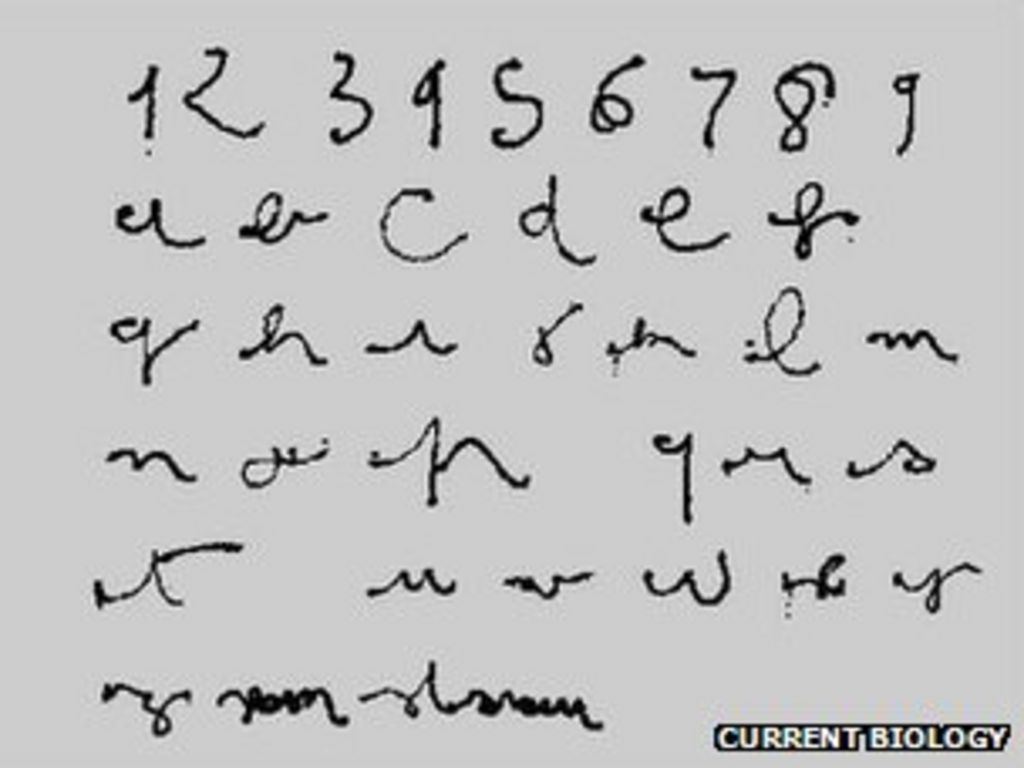 1 2 3 4 5 6 7 8 9
a b c d e f
g h i j k l m
n o p q r s
t u v w x y
z
CURRENT BIOLOGY